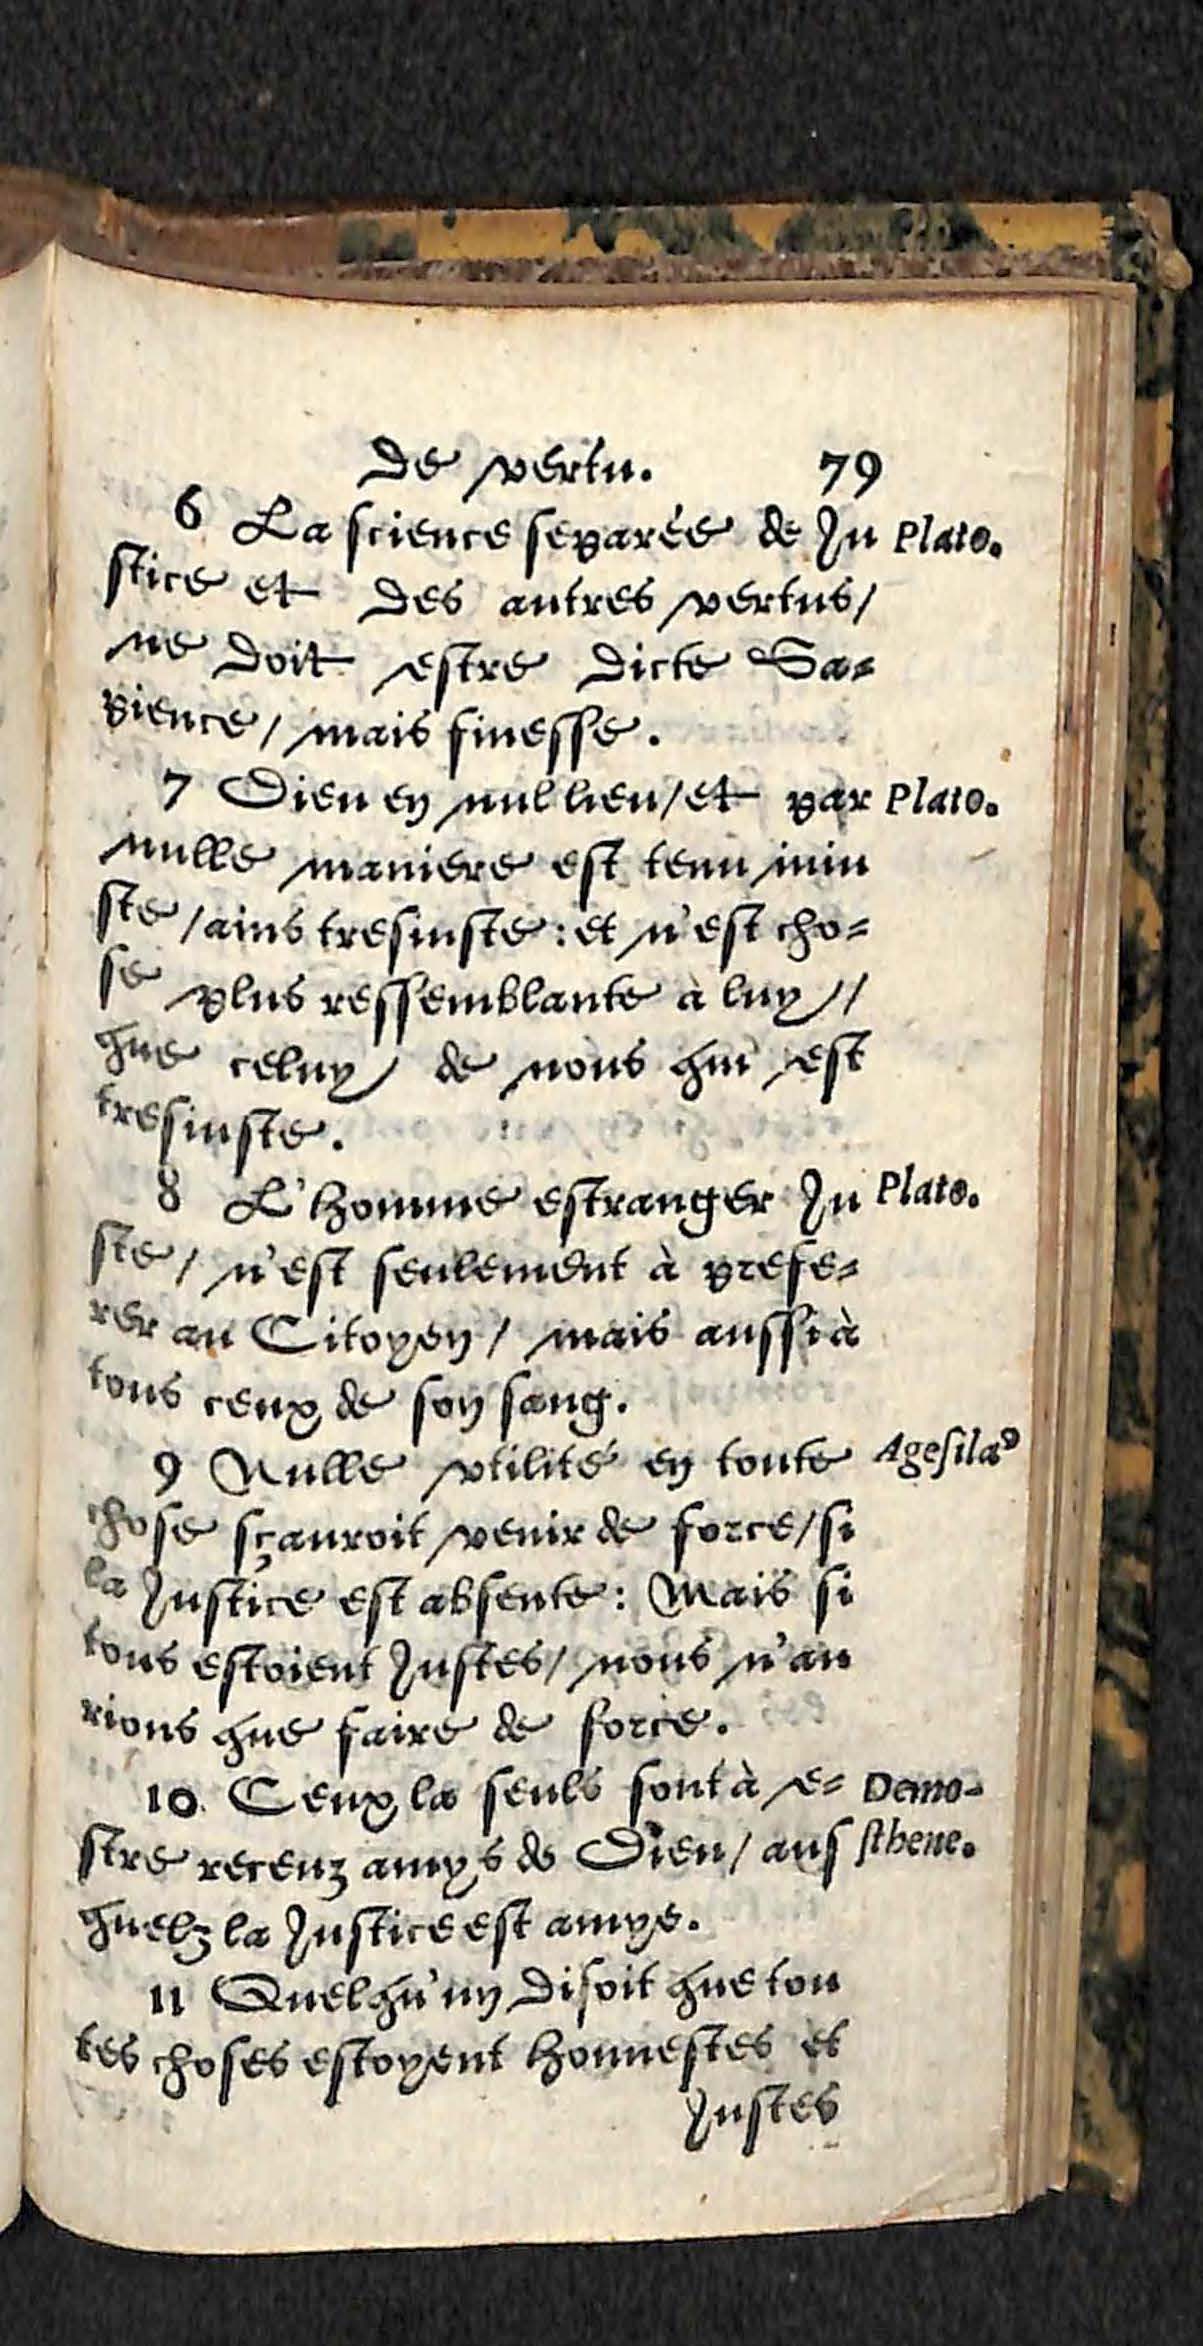 de vertu. 79
6 La science separée de Iu Plato.
stice et des autres vertus/
ne doit estre dicte Sa-
pience/ mais finesse.
7 Dieu en nul lieu/et par Plato.
nulle maniere est tenu iniu
ste/ains tresiuste: et n'est cho-
se plus ressemblante à luy/
que celuy de nous qui est
tresiuste.
8 L'homme estranger Iu Plato.
ste/ n'est seulement à prefe-
rer au Citoyen/ mais aussi à
tous ceux de son sang.
9 Nulle vtilité en toute Agesila⁹
chose sçauroit venir de force/si
la Iustice est absente: Mais si
tous estoient Iustes/ nous n'au
rions que faire de force.
10. Ceux la seuls sont à e- Demo-
stre receuz amys de Dieu/ aus sthene.
quelz la Iustice est amye.
11 Quelqu'un disoit que tou
tes choses estoyent honnestes et
Iustes